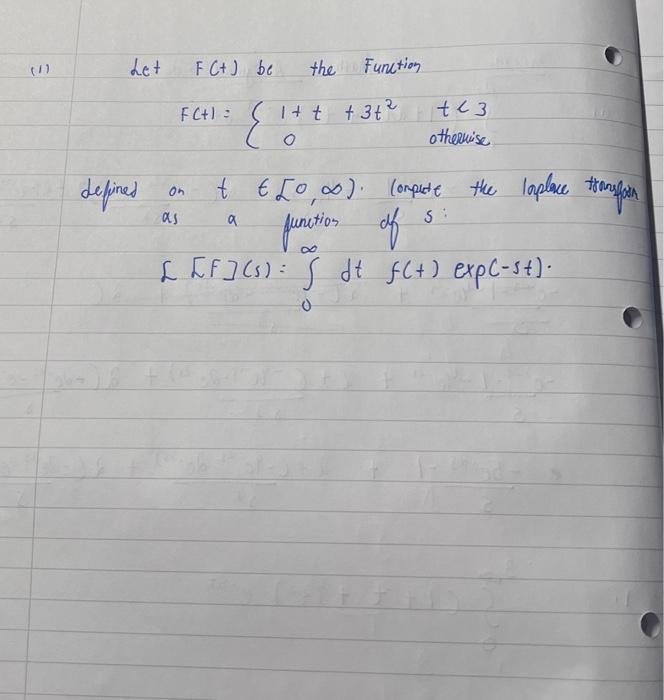 (1) Let F(t) be the Function
F(t) = { 1 + t + 3t² t < 3
0 otherwise
defined on t ∈ [0, ∞). Compute the laplace transform
as a function of s:
L [F](s) = ∫₀^∞ dt f(t) exp(-st).